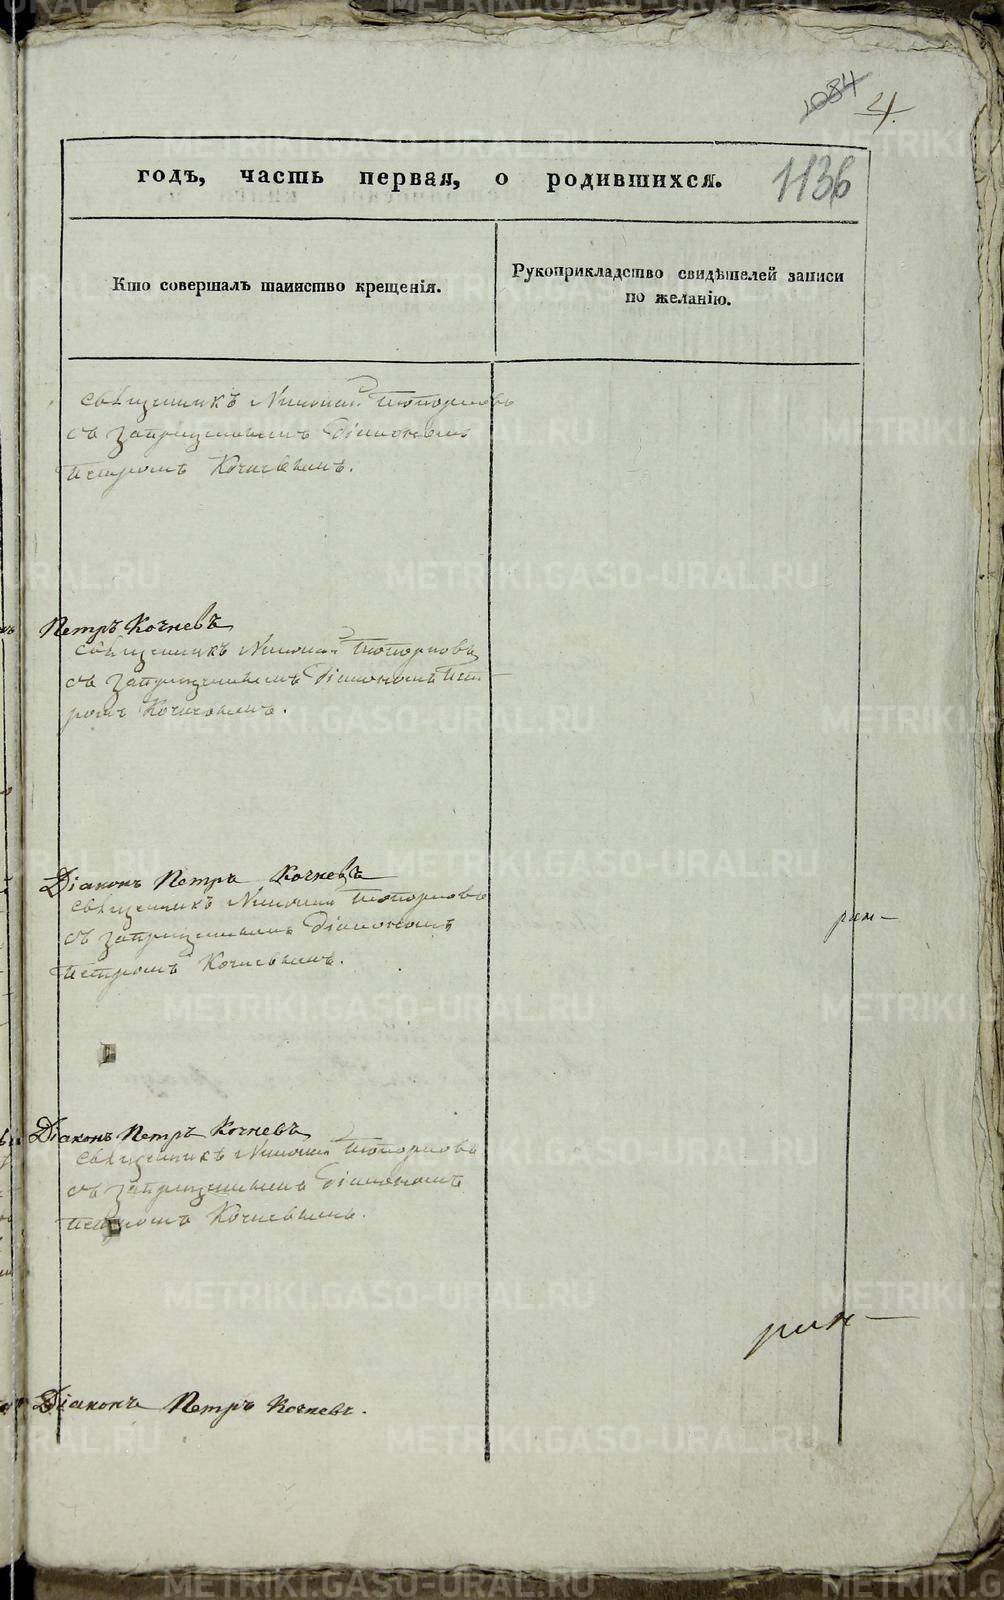 1084
4
1136
годъ, часть первая, о родившихся.
Кто совершалъ таинство крещенія.
Рукоприкладство свидѣтелей записи
по желанію.
священникъ Николай Топорковъ
съ запрещеннымъ Діакономъ
Петромъ Кочневымъ.
Петръ Кочневъ
священникъ Николай Топорковъ
съ запрещеннымъ Діакономъ Пет-
ромъ Кочневымъ.
Діаконъ Петръ Кочневъ
священникъ Николай Топорковъ
съ запрещеннымъ Діакономъ
Петромъ Кочневымъ.
Діаконъ Петръ Кочневъ
священникъ Николай Топорковъ
съ запрещеннымъ Діакономъ
Петромъ Кочневымъ.
Діаконъ Петръ Кочневъ.
METRIKI.GASO-URAL.RU